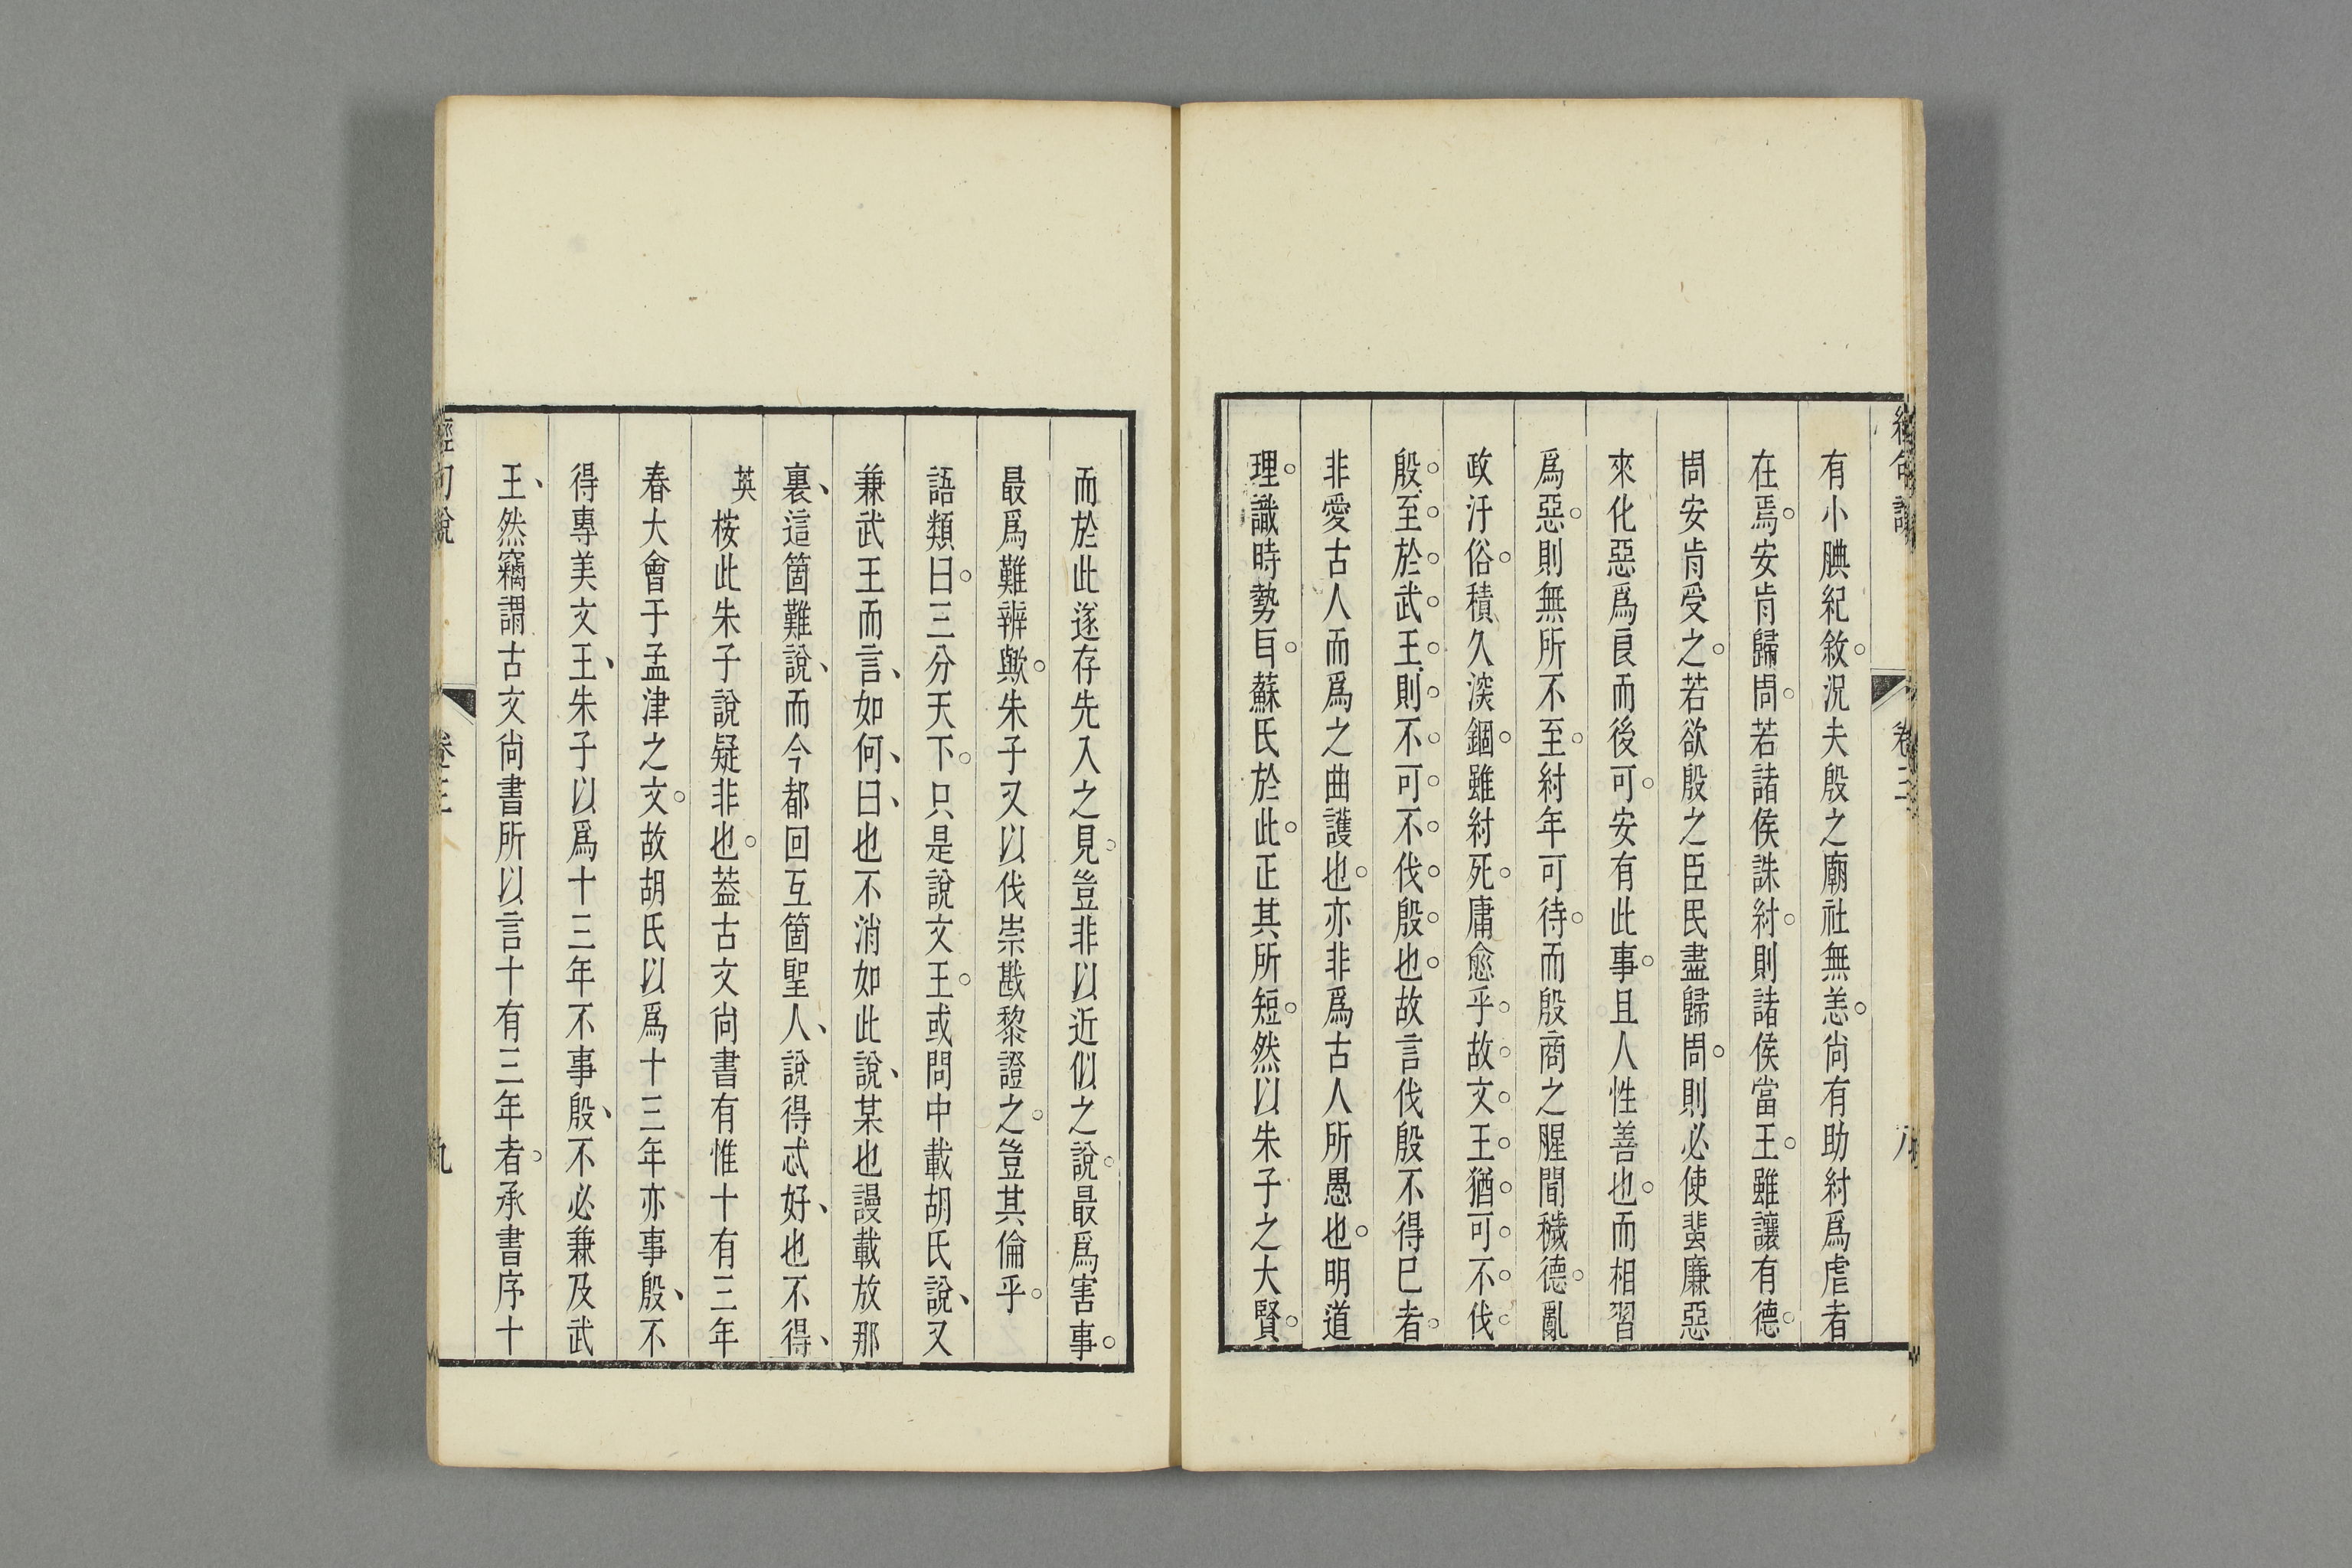 有小腆紀敘。況夫殷之廟社無恙。尙有助紂爲虐者
在焉。安肯歸周。若諸侯誅紂。則諸侯當王。雖讓有德。
周安肯受之。若欲殷之臣民盡歸周。則必使蜚廉惡
來化惡爲良而後可。安有此事。且人性善也。而相習
爲惡。則無所不至。紂年可待。而殷商之腥聞穢德。亂
政汙俗。積久湥錮。雖紂死。庸愈乎。故文王猶可不伐
殷。至於武王。則不可不伐殷也。故言伐殷不得已者。
非愛古人而爲之曲護也。亦非爲古人所愚也。明道
理。識時勢㠯。蘇氏於此。正其所短。然以朱子之大賢。
而於此遂存先入之見。豈非以近似之說。最爲害事。
最爲難辨歟。朱子又以伐崇戡黎證之。豈其倫乎。
語類曰。三分天下。只是說文王。或問中載胡氏說、又
兼武王而言、如何、曰、也不消如此說、某也謾載放那
裏、這箇難說、而今都回互箇聖人、說得忒好、也不得、
英桉此朱子說疑非也。葢古文尙書有惟十有三年
春大會于孟津之文。故胡氏以爲十三年亦事殷、不
得專美文王、朱子以爲十三年不事殷、不必兼及武
王、然竊謂古文尙書所以言十有三年者。承書序十
經句說
卷三
九
卷三
八